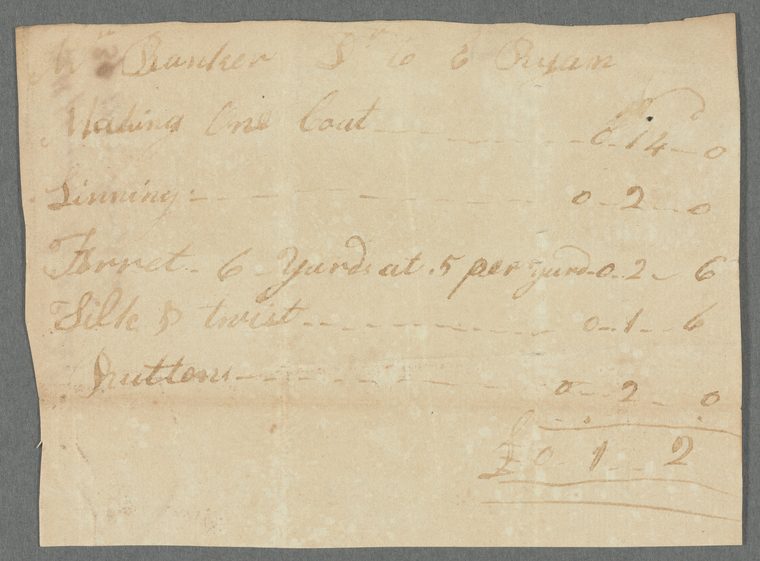 Mr Banker Dr to E Ryan
Making One Coat 0 14 0
Linning 0 2 0
Ferret 6 Yards at 5 per yard 0 2 6
Silk & twist 0 1 6
Buttons 0 2 0
£ 0 1 2